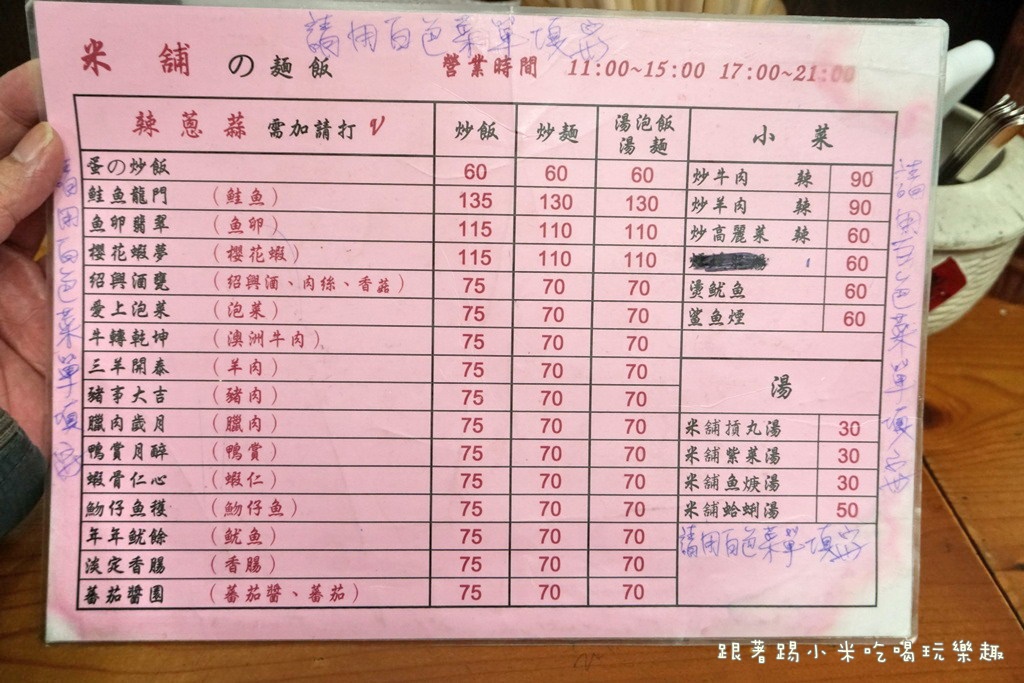 請用白色菜單填寫
米舖の麵飯 營業時間 11:00~15:00 17:00~21:00
辣蔥蒜 需加請打V 炒飯 炒麵 湯泡飯 湯麵
蛋の炒飯 60 60 60
鮭魚龍門 (鮭魚) 135 130 130
魚卵翡翠 (魚卵) 115 110 110
櫻花蝦夢 (櫻花蝦) 115 110 110
紹興酒甕 (紹興酒、肉絲、香菇) 75 70 70
愛上泡菜 (泡菜) 75 70 70
牛轉乾坤 (澳洲牛肉) 75 70 70
三羊開泰 (羊肉) 75 70 70
豬事大吉 (豬肉) 75 70 70
臘肉歲月 (臘肉) 75 70 70
鴨賞月醉 (鴨賞) 75 70 70
蝦骨仁心 (蝦仁) 75 70 70
魩仔魚穫 (魩仔魚) 75 70 70
年年魷餘 (魷魚) 75 70 70
淡定香腸 (香腸) 75 70 70
蕃茄醬園 (蕃茄醬、蕃茄) 75 70 70
小菜
炒牛肉 辣 90
炒羊肉 辣 90
炒高麗菜 辣 60
60
燙魷魚 60
鯊魚煙 60
湯
米舖摃丸湯 30
米舖紫菜湯 30
米舖魚焿湯 30
米舖蛤蜊湯 50
請用白色菜單填寫
請用白色菜單填寫
請用白色菜單填寫
跟著踢小米吃喝玩樂趣